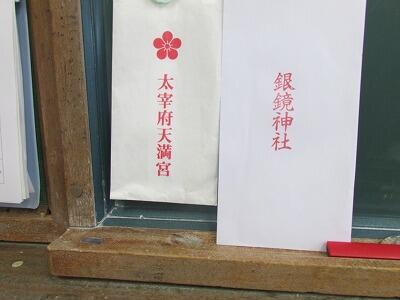 太宰府天満宮
銀鏡神社